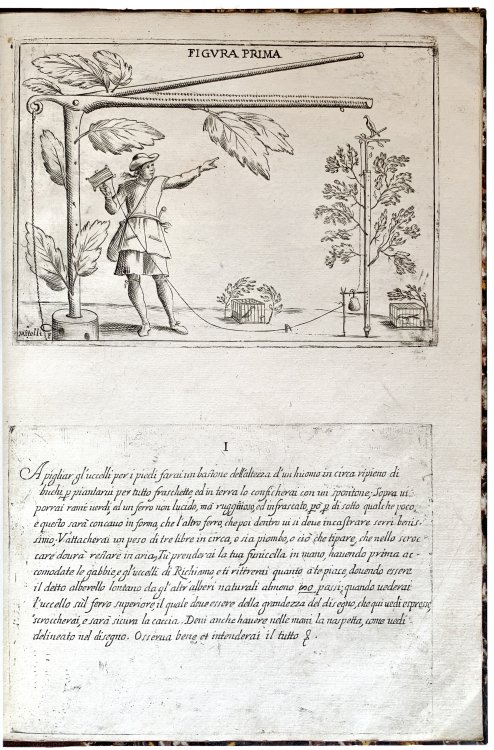 FIGVRA PRIMA
Mitelli F
I
A pigliar gl'uccelli per i piedi farai un bastone dell'altezza d'un huomo in circa ripieno di
buchi, p piantarui per tutto fraschette, ed in terra lo conficherai con un spontone; Sopra ui
porrai rami uerdi, ed un ferro non lucido, mà rugginoso, ed infrascato, però p di sotto qualche poco,
e questo sarà concauo in forma, che l'altro ferro, che poi dentro ui si deue incastrare serri benis-
simo. V'attacherai un peso di tre libre in circa, ò sia piombo, ò ciò che ti pare, che nello scroc-
care dourà restare in aria. Tu prenderai la tua funicella in mano, hauendo prima ac-
comodate le gabbie, e gl'uccelli di Richiamo, e ti ritirerai quanto à te piace, douendo essere
il detto alberello lontano da gl'altri alberi naturali almeno passi; quando uederai
l'uccello sù'l ferro superiore, il quale deue essere della grandezza del disegno, che qui uedi espresso,
scroccherai, e sarà sicura la caccia. Deui anche hauere nelle mani la naspetta, come uedi
delineato nel disegno. Osserua bene, et intenderai il tutto